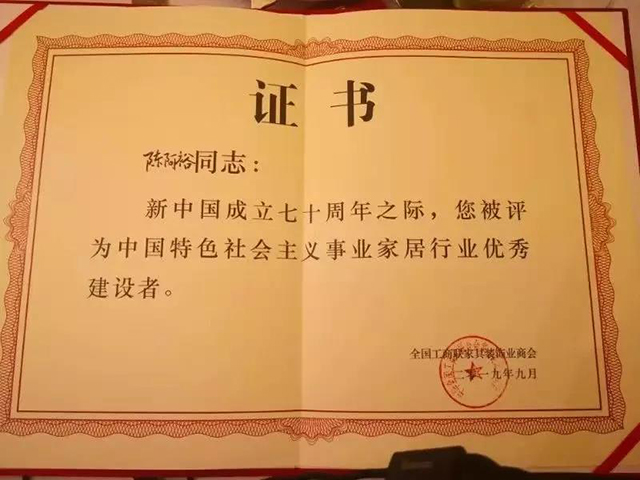 证书
陈阿裕同志：
新中国成立七十周年之际，您被评
为中国特色社会主义事业家居行业优秀
建设者。
全国工商联家具装饰业商会
二〇一九年九月